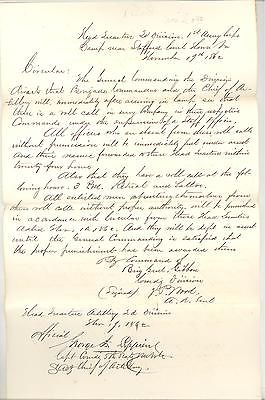 Hdqd Quarters 2d Division, 1st Army Corps
Camp near Stafford Court House Va
November 29th 1862
Circular:
The General Commanding the Division
directs that Brigade Commanders and the Chief of Ar-
tillery will, immediately after arriving in camp, see that
there is a roll call in every Company in their respective
Commands under the supervision of a Staff Officer.
All officers who are absent from these roll calls
without permission will be immediately put under arrest
and their names forwarded to these Head Quarters within
twenty four hours.
Also that they have a roll call at the fol-
lowing hours: 3 P.M. Retreat and Tattoo.
All enlisted men absenting themselves from
these roll calls without proper authority, will be punished
in accordance with circular from these Head Quarters
dated 1862. And they will be kept in arrest
until the General Commanding is satisfied that
the proper punishment has been awarded them
By Command of
Brig Genl. Gibbon
Comdg Division
(Signed) J. P. Wood
A. A. Genl
Head Quarters Artillery 2d Division
1862
Official
George
Capt Comdg 5th
Chief of Artillery